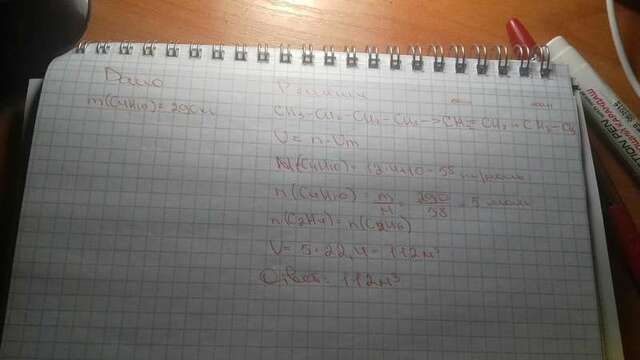 Дано
Решение
m(C4H10)=290кг
CH3-CH2-CH2-CH3->CH2=CH2+CH3-CH3
V=n·Vm
M(C4H10)=12·4+10=58
n(C4H10)=m/M=290/58=5
n(C2H4)=n(C2H6)
V=5·22,4=112м³
Ответ: 112м³
PEN